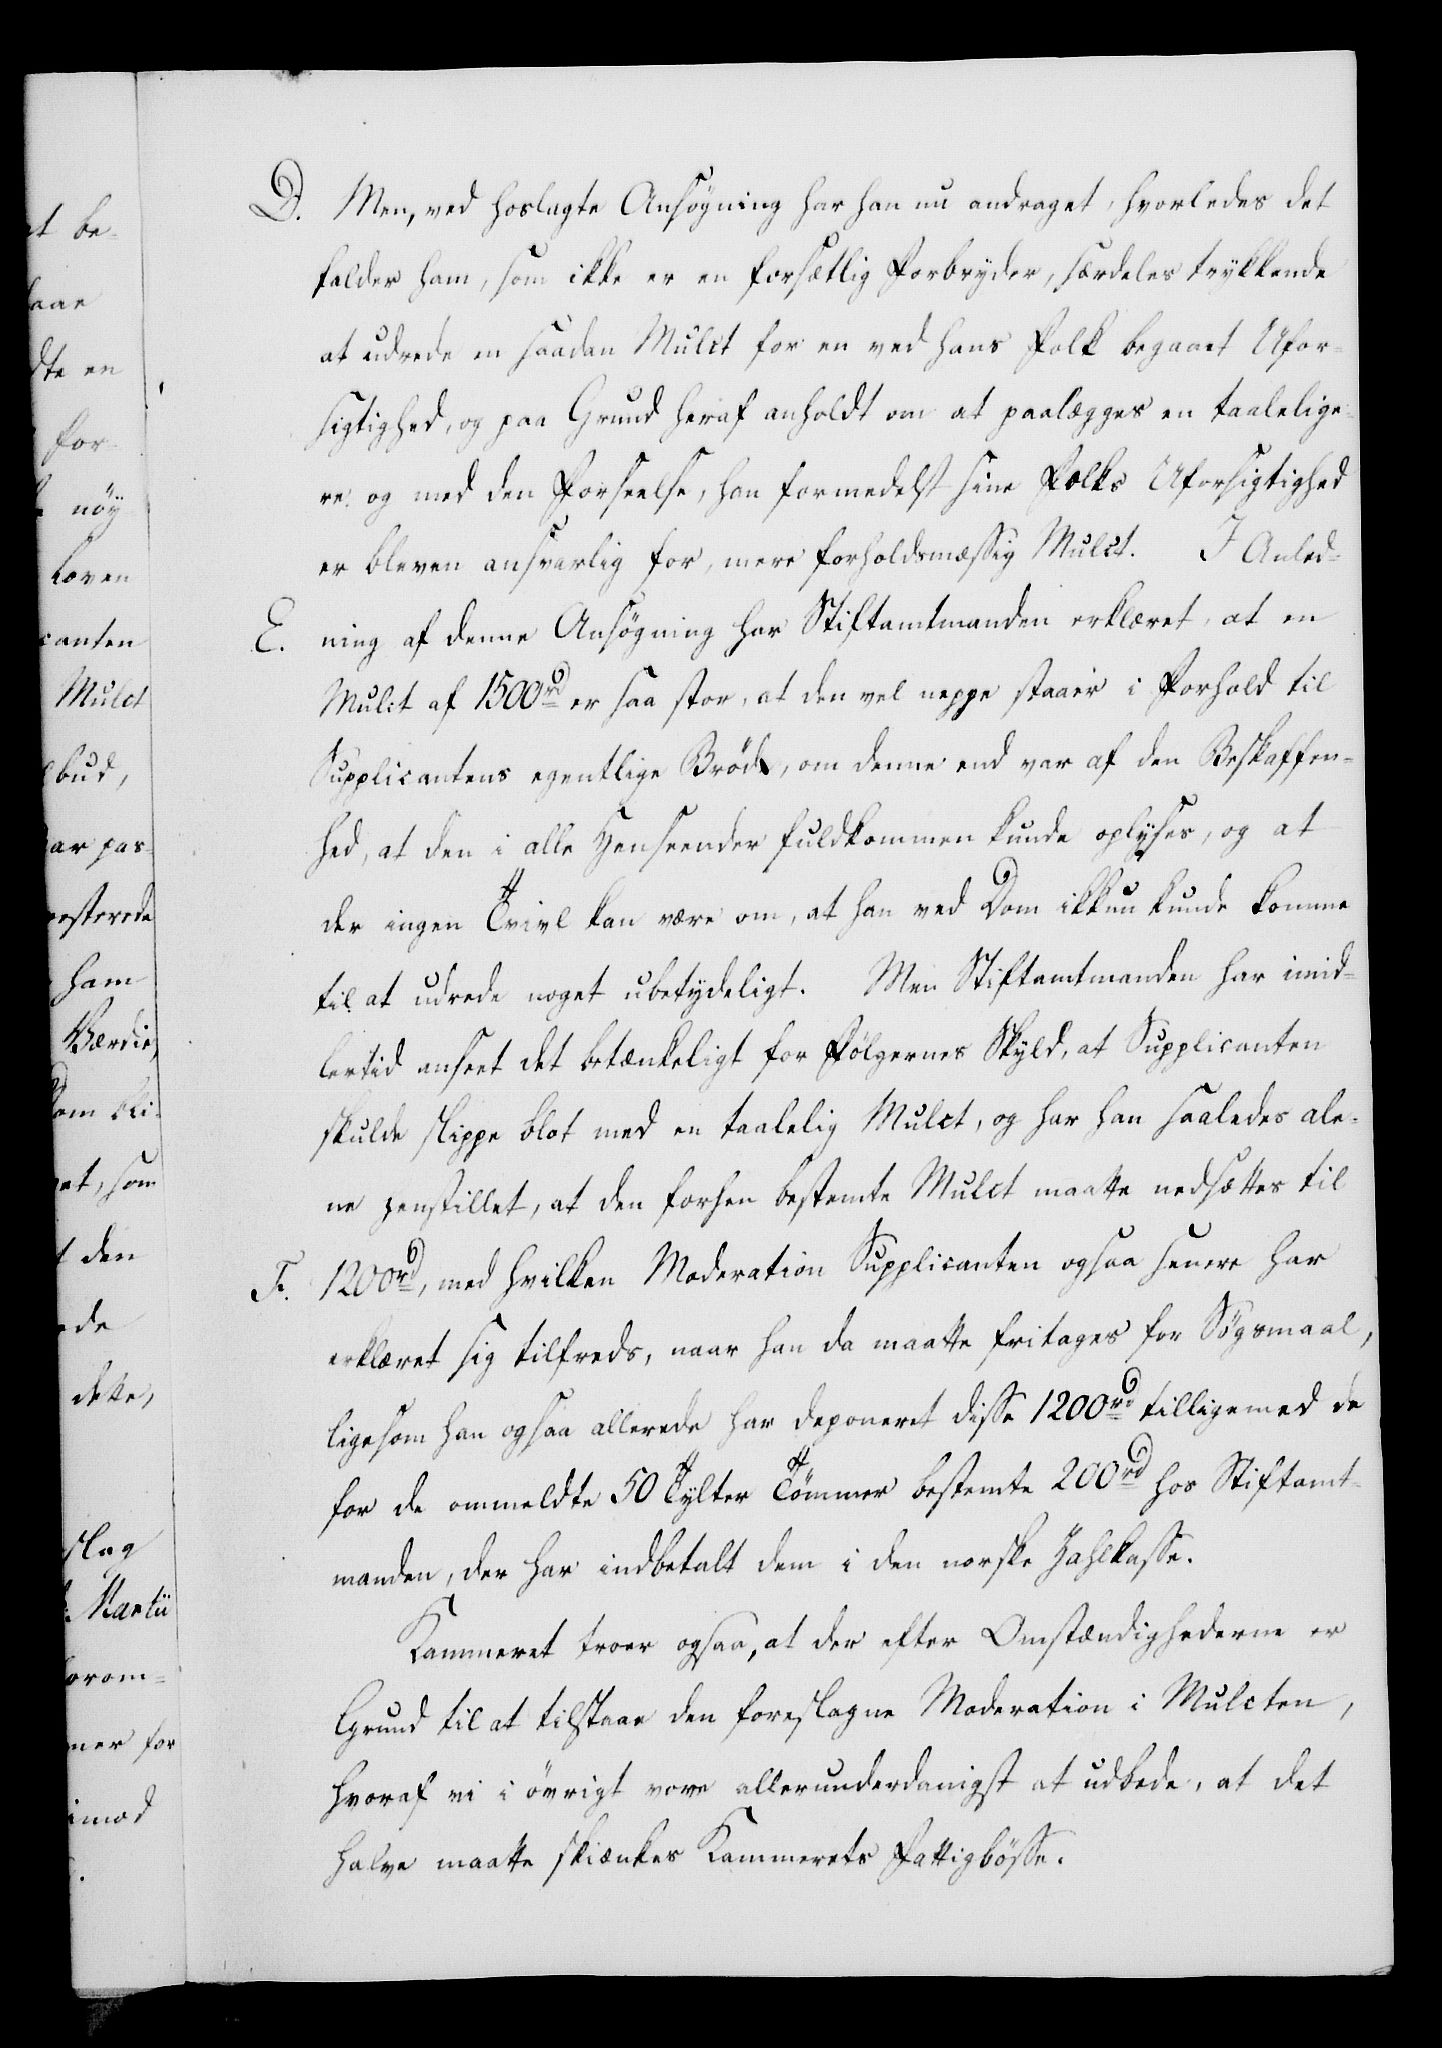 D. Men, ved hoslagte Ansøgning har han nu andraget, hvorledes det
falder ham, som ikke er en forsætlig Forbryder, særdeles trykkende
at udrede en saadan Mulct for en ved hans Folk begaaet Ufor-
sigtighed, og paa Grund heraf anholdt om at paalægges en taalelige-
re og med den Forseelse, han formedelst sine Folks Uforsigtighed
er bleven ansvarlig for, mere forholdsmæssig Mulct. I Anled-
E. ning af denne Ansøgning har Stiftamtmanden erklæret, at en
Mulct af 1500 rd er saa stor, at den vel neppe staaer i Forhold til
Supplicantens egentlige Bröde, om denne end var af den Beskaffen-
hed, at den i alle Henseender fuldkommen kunde oplyses, og at
der ingen Tvivl kan være om, at han ved Dom ikkun kunde komme
til at udrede noget ubetydeligt. Men Stiftamtmanden har imid-
lertid anseet det betænkeligt for Følgernes Skyld, at Supplicanten
skulde slippe blot med en taalelig Mulct, og har han saaledes ale-
ne henstillet, at den forhen bestemte Mulct maatte nedsættes til
F. 1200 rd, med hvilken Moderation Supplicanten ogsaa senere har
erklæret sig tilfreds, naar han da maatte fritages for Søgsmaal,
ligesom han ogsaa allerede har deponeret disse 1200 rd tilligemed de
for de ommeldte 50 Tylter Tömmer bestemte 200 rd hos Stiftamt-
manden, der har indbetalt dem i den norske Zahlkasse.
Kammeret troer ogsaa, at der efter Omstændighederne er
Grund til at tilstaae den foreslagne Moderation i Mulcten,
hvoraf vi i övrigt vove allerunderdanigst at udbede, at det
halve maatte skiænkes Kammerets Fattigbösse.